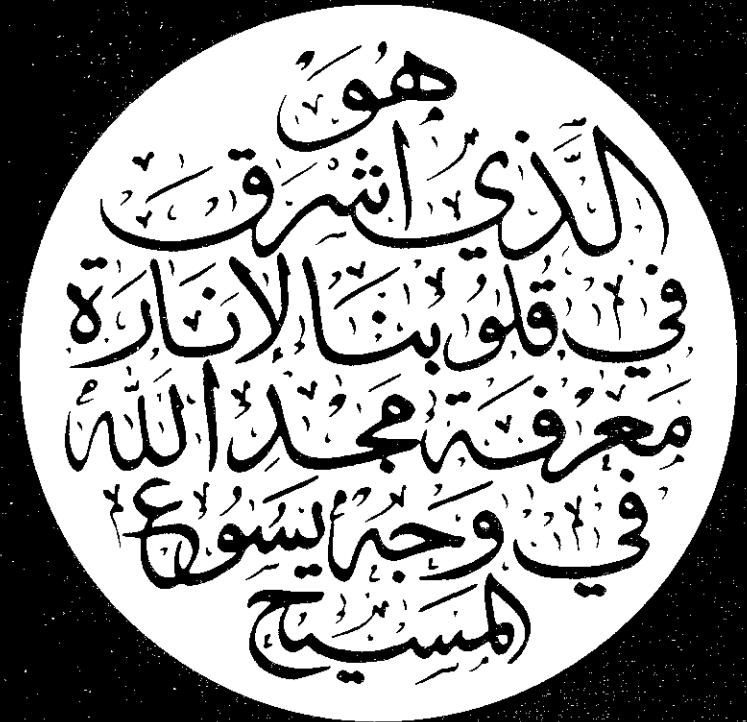 هُوَ
الَّذِي أَشْرَقَ
فِي قُلُوبِنَا لِإِنَارَةِ
مَعْرِفَةِ مَجْدِ اللهِ
فِي وَجْهِ يَسُوعَ
المَسِيحِ